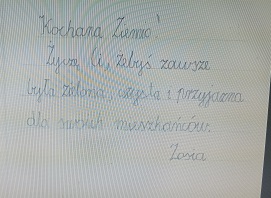 Kochana Ziemio!
Życzę Ci, żebyś zawsze
była zielona, czysta i przyjazna
dla swoich mieszkańców.
Zosia